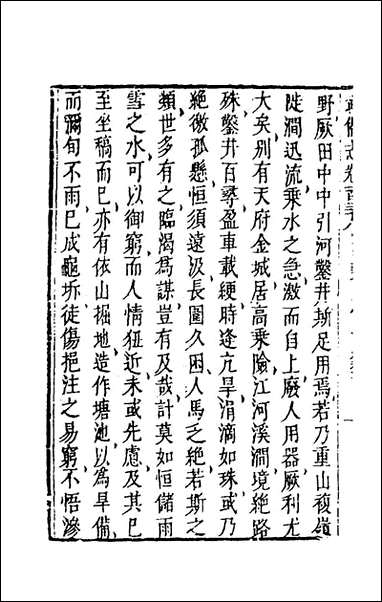 武備志卷百三十八
野厥田中中引河鑿井斯足用焉若乃重山複嶺
陡澗迅流乘水之急激而自上廢人用器厥利尤
大矣別有天府金城居高乘險江河溪澗境絶路
殊鑿井百尋盈車載綆時逢亢旱涓滴如珠或乃
絶徼孤懸恒須遠汲長圍久困人馬乏絶若斯之
類世多有之臨渴爲謀豈有及哉計莫如恒儲雨
雪之水可以御窮而人情狃近未或先慮及其已
至坐稿而已亦有依山掘地造作塘池以爲旱備
而彌旬不雨已成龜坼徒傷挹注之易窮不悟滲